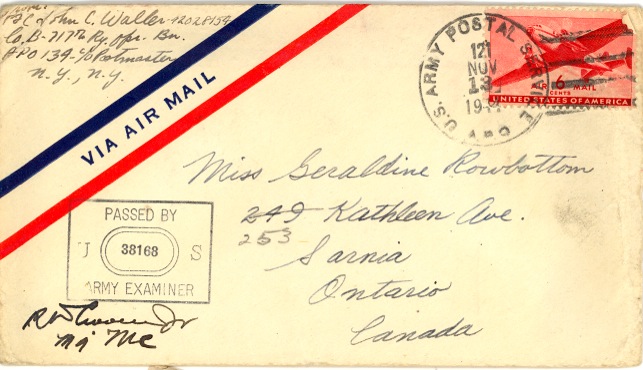 From:
Pfc John C. Waller - 12028154
Co. B - 717th Ry. Opr. Bn.
APO 134 - c/o Postmaster
N.Y., N.Y.
VIA AIR MAIL
U.S. ARMY POSTAL SERVICE
APO
121
NOV
13
AIR 6 MAIL
CENTS
UNITED STATES OF AMERICA
Miss Geraldine Rowbottom
249 Kathleen Ave.
253
Sarnia
Ontario
Canada
PASSED BY
U 38168 S
ARMY EXAMINER
Jr
Maj MC